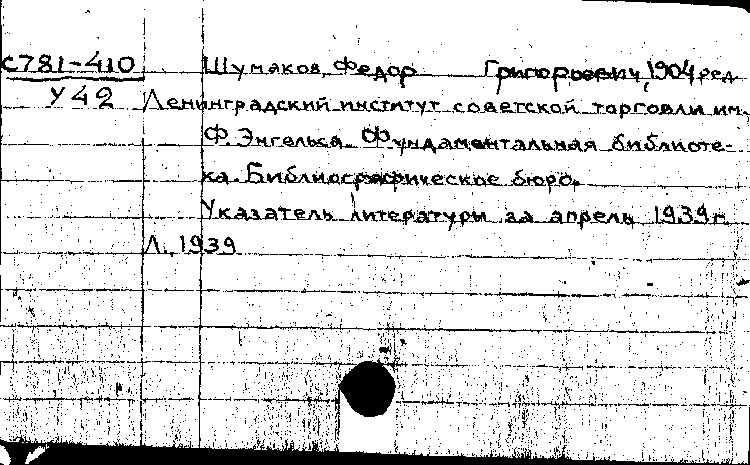 С781-410 Шумаков, Федор Григорьевич, 1904 ред.
У42 Ленинградский институт советской торговли им.
Ф. Энгельса. Фундаментальная библиоте-
ка. Библиографическое бюро.
Указатель литературы за апрель 1939 г.
Л., 1939